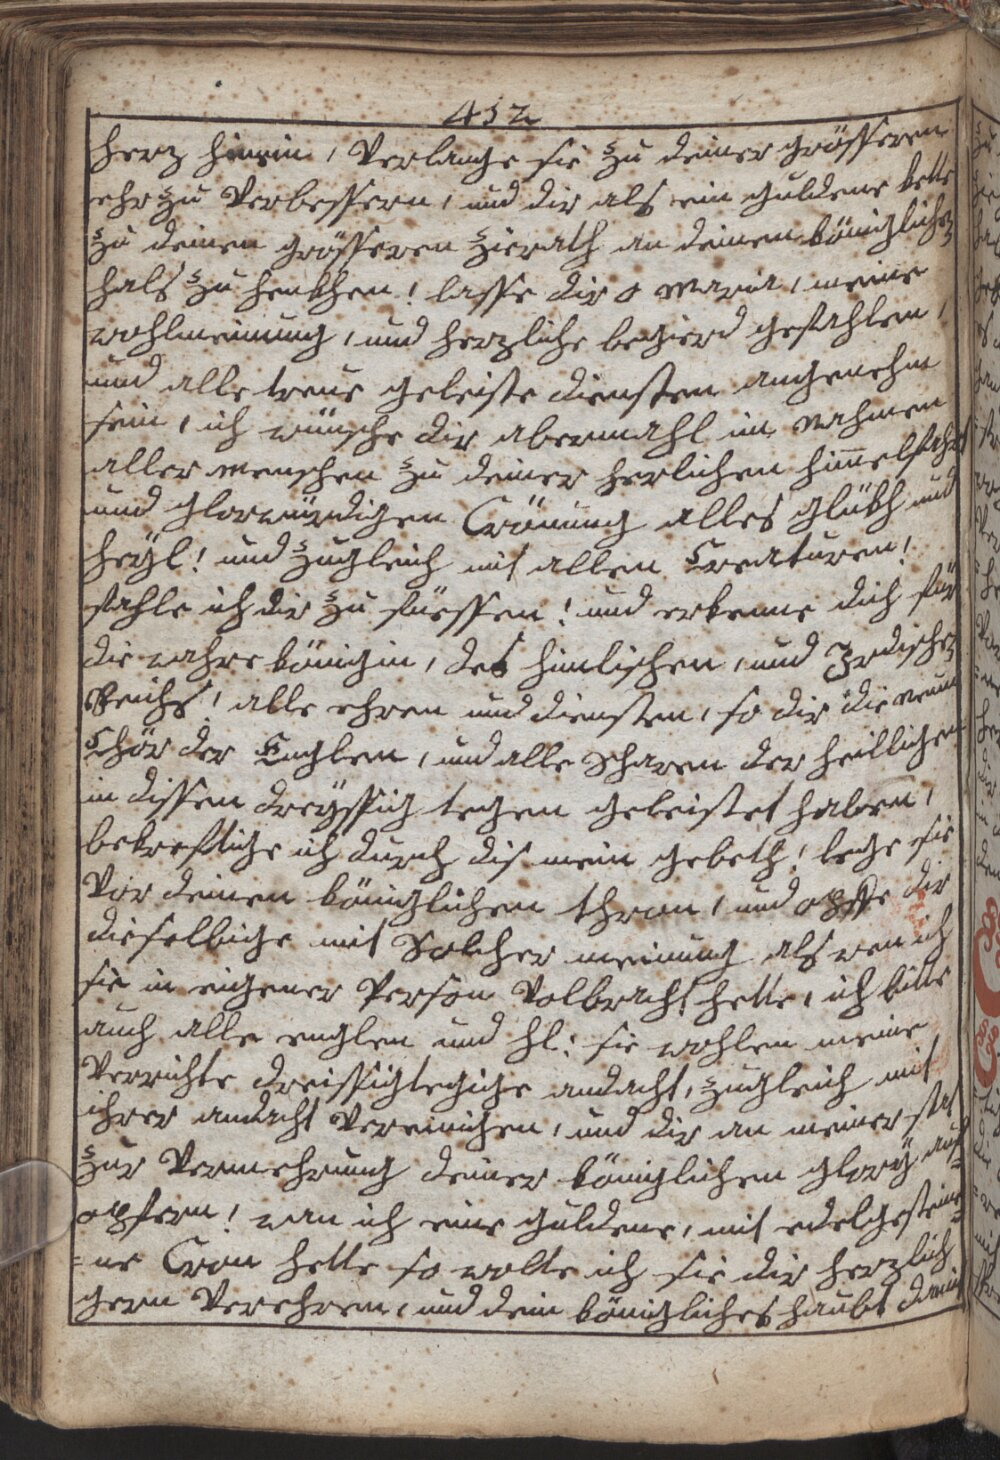 432
herz hinein, Verlange sie zu deiner grösseren
ehr zu Verbessern, und dir als ein guldene kette
zu deinen grösseren zierath an deinen königlichen
hals zu henkhen! lasse dir o Maria, meine
wohlmeinung, und herzliche begierd gefahlen,
und alle treue geleiste diensten angenehm
sein, ich wünsche dir abermahl im Nahmen
aller menschen zu deiner herlichen himelfahrt
und glorwürdigen Crönung alles glükh und
heÿl! und zugleich mit allen Creaturen!
fahle ich dir zu füessen! und erkenne dich für
die wahre königin, des himlischen, und Irdischen
Reichs, alle ehren und diensten, so dir die neun
Chör der Englen, und alle scharen der heilligen
in dissen dreÿssig tegen geleistet haben,
bekreftige ich durch dis mein gebeth! lege sie
Vor deinen königlichen thron, und opffre dir
dieselbige mit Solcher meinung als wen ich
sie in eigener Person Volbracht hette, ich bitte
auch alle englen und hl: sie wohlen meine
Verrichte dreissigtegige andacht, zugleich mit
ihrer andacht Vereinigen, und dir an meiner stat
zur Vermehrung deiner königlichen glorÿ auf=
opfern! wan ich eine guldene, mit edelgesteine=
=ne Cron hette so wolte ich sie dir herzlich
gern Verehren, und dein königliches haubt damit